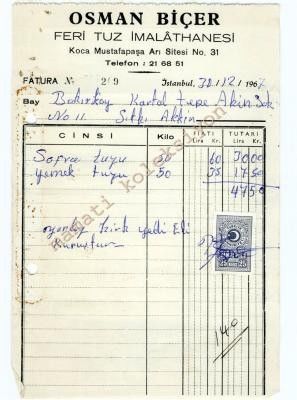 OSMAN BİÇER
FERİ TUZ İMALÂTHANESİ
Koca Mustafapaşa Arı Sitesi No. 31
Telefon : 21 68 51
FATURA № 219 İstanbul, 30/12/1967
Bay Bakırköy Kartal tepe Akın Sok
No 11 Sıtkı Akkın
CİNSİ Kilo FİATI TUTARI
Lira Kr. Lira Kr.
Sofra tuzu 50 60 3000
yemek tuzu 50 35 1750
4750
yalnız kırk yedi lira
kuruştur
140
hayati koleksiyon